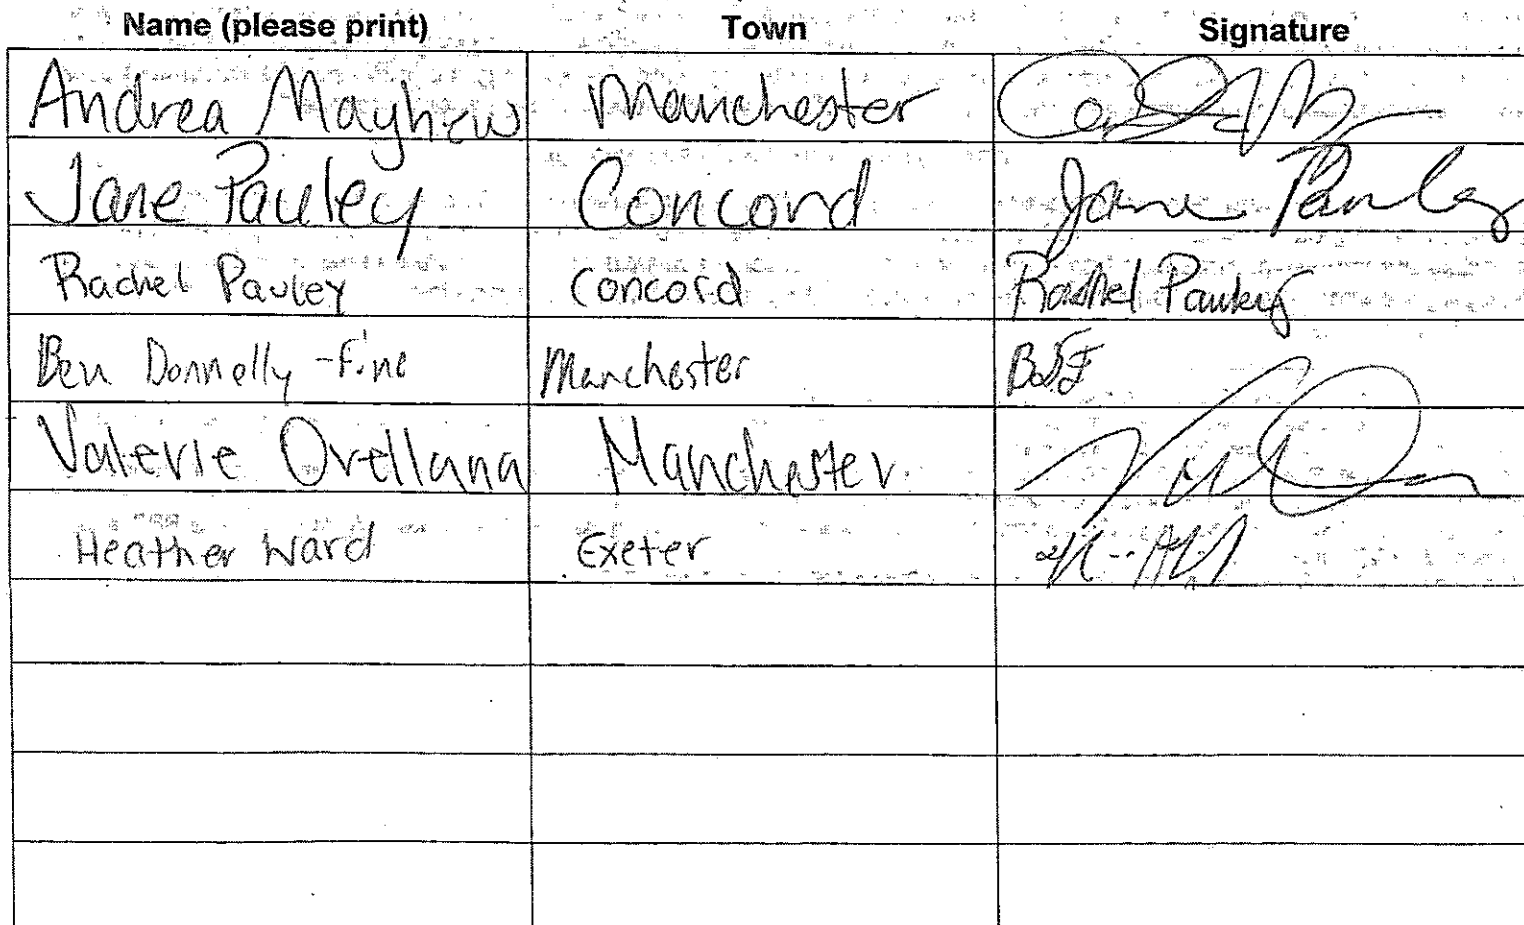 Name (please print) Town Signature
Andrea Mayhew Manchester
Jane Pauley Concord Jane Pauley
Rachel Pauley Concord Rachel Pauley
Ben Donnelly-Fine Manchester BDF
Valerie Orellana Manchester
Heather Ward Exeter